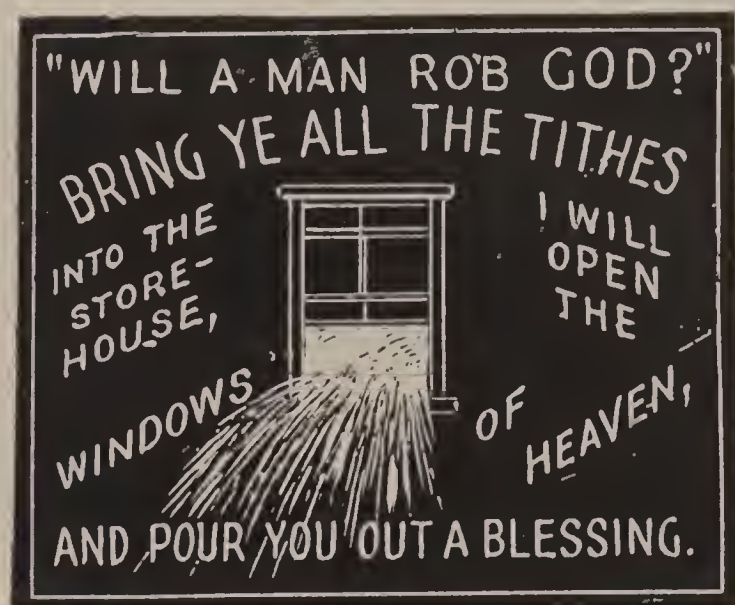 "WILL A MAN ROB GOD?"
BRING YE ALL THE TITHES
INTO THE
STORE-
HOUSE,
I WILL
OPEN
THE
WINDOWS
OF
HEAVEN,
AND POUR YOU OUT A BLESSING.